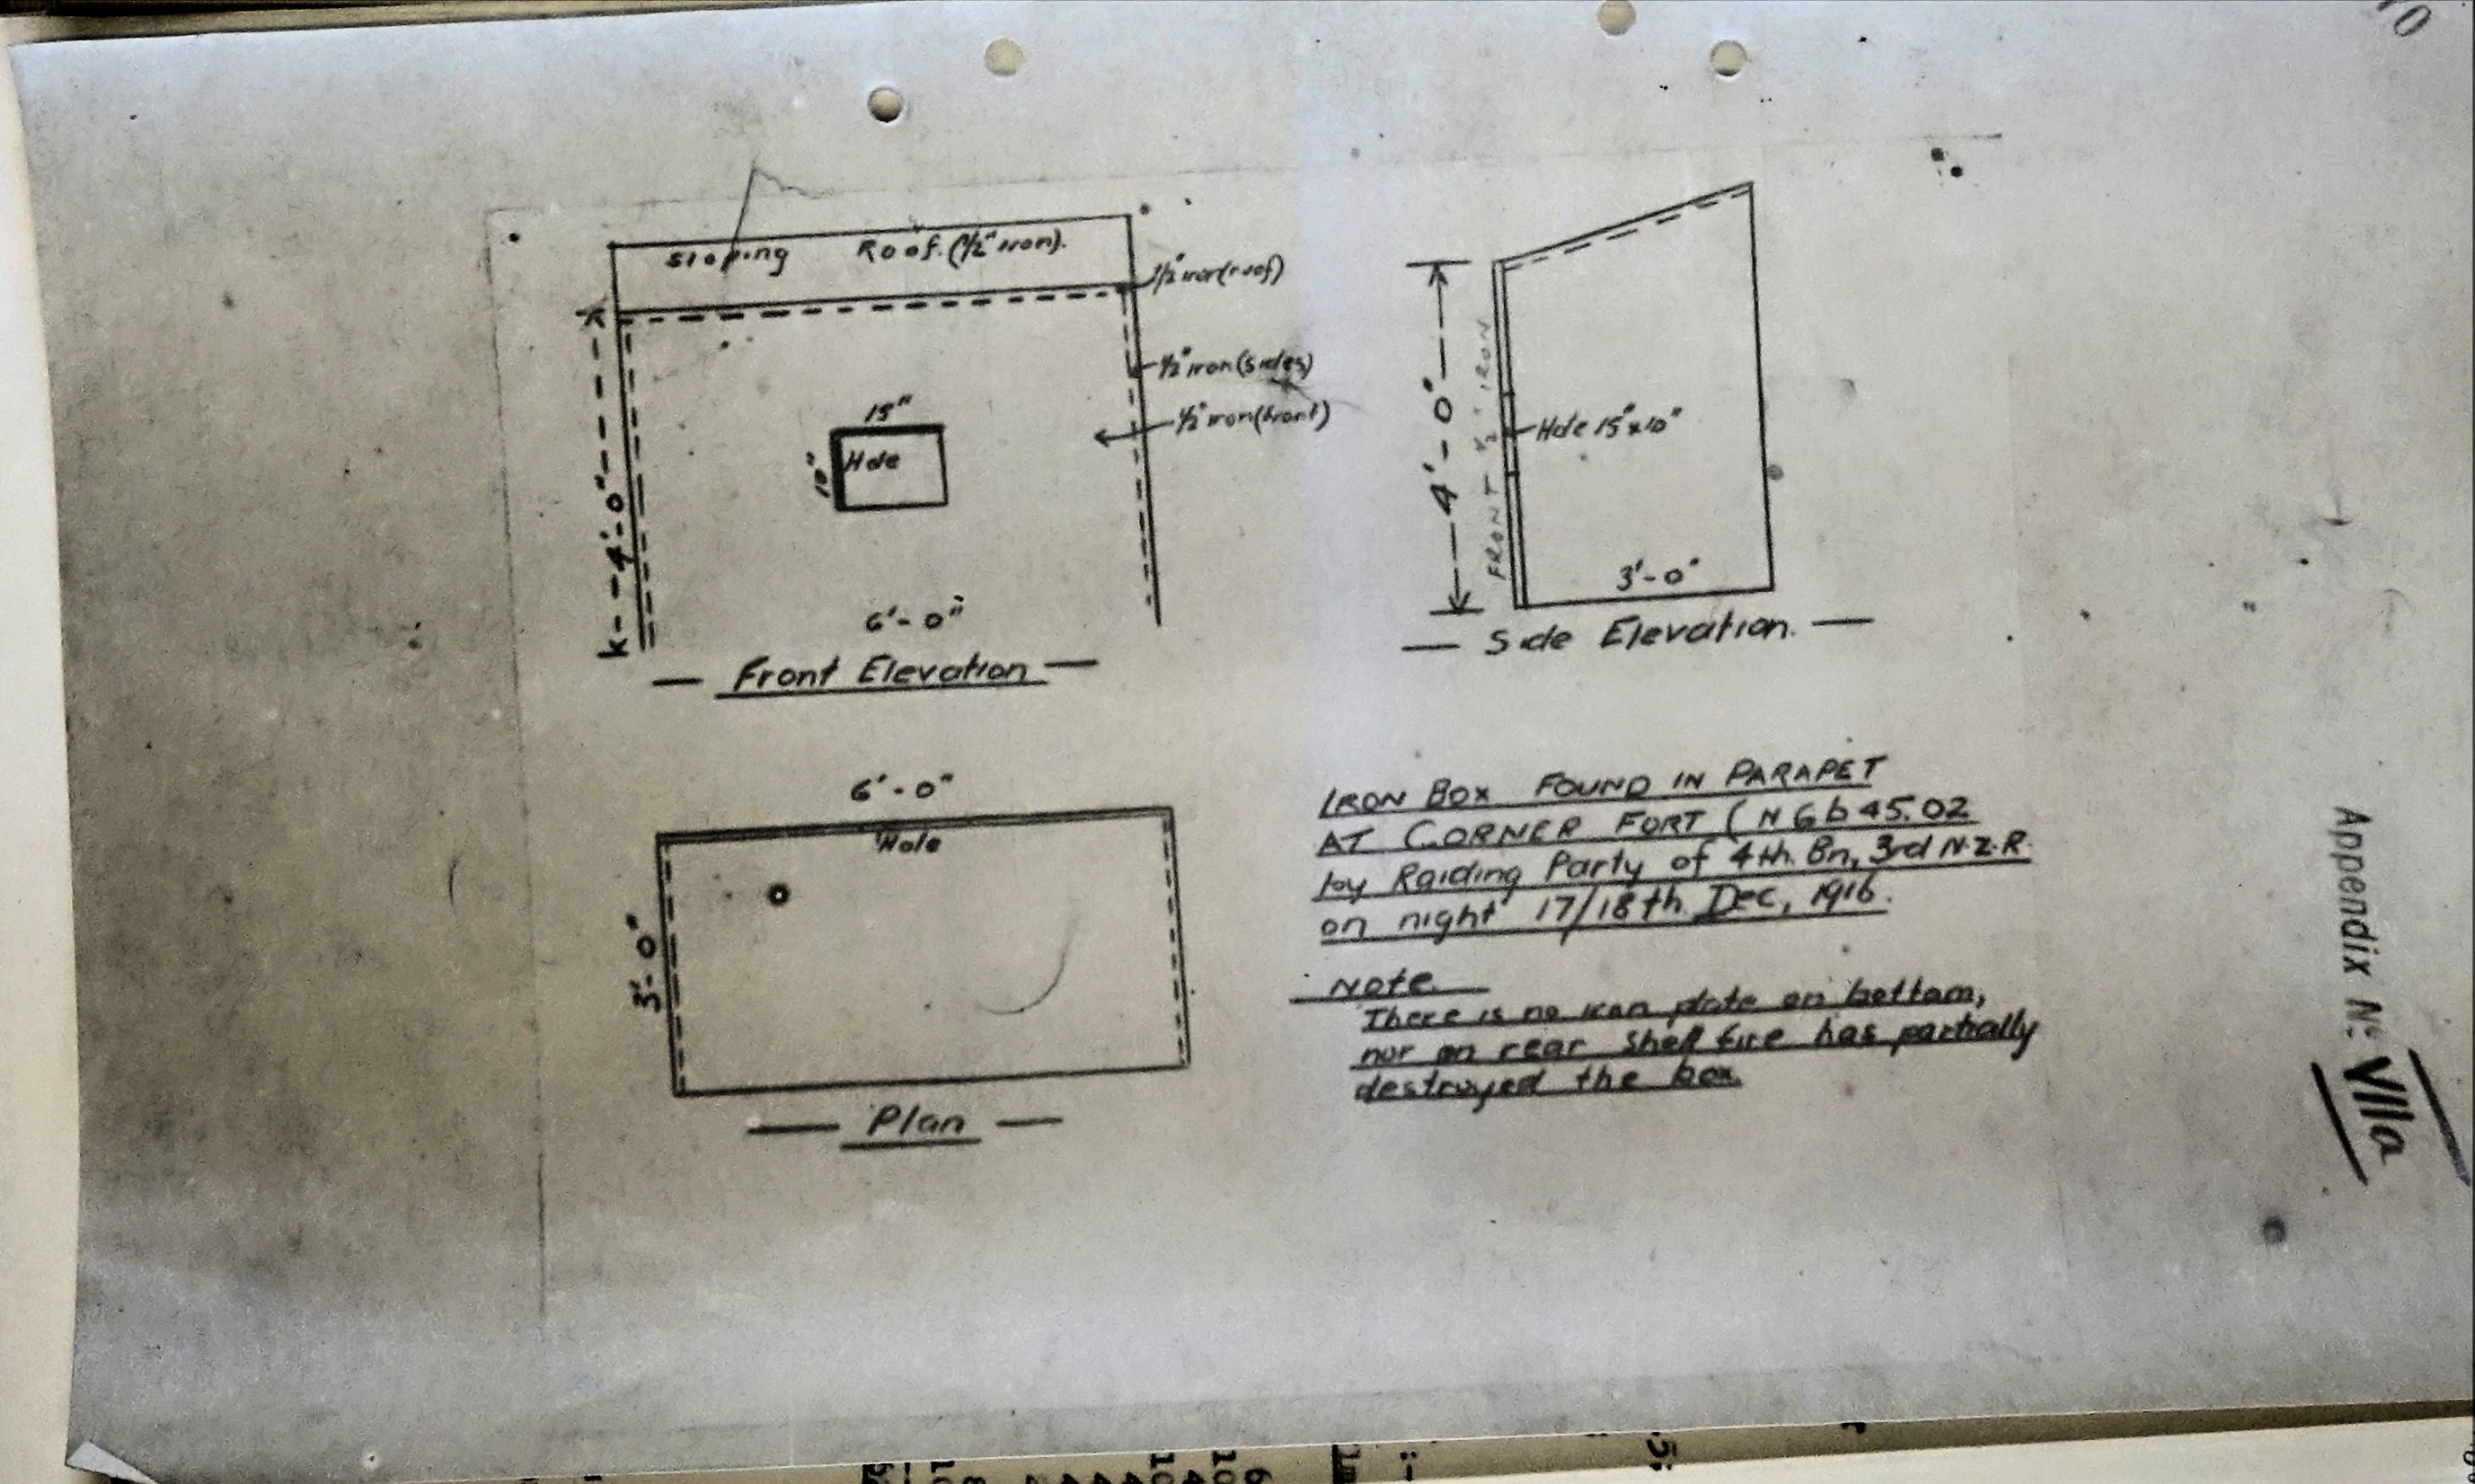 10
Sloping Roof. (1/2" iron).
1/2" iron (roof)
1/2" iron (sides)
1/2" iron (front)
15"
10"
Hole
4'-0"
6'-0"
Front Elevation
4'-0"
FRONT 1/2" IRON
Hole 15"x10"
3'-0"
Side Elevation.
6'-0"
Hole
3'-0"
Plan
IRON BOX FOUND IN PARAPET
AT CORNER FORT (N 6 b 45.02
by Raiding Party of 4th. Bn, 3rd N.Z.R.
on night 17/18th. Dec, 1916.
Note
There is no iron plate on bottom,
nor on rear Shell fire has partially
destroyed the box.
Appendix No. VIIIa